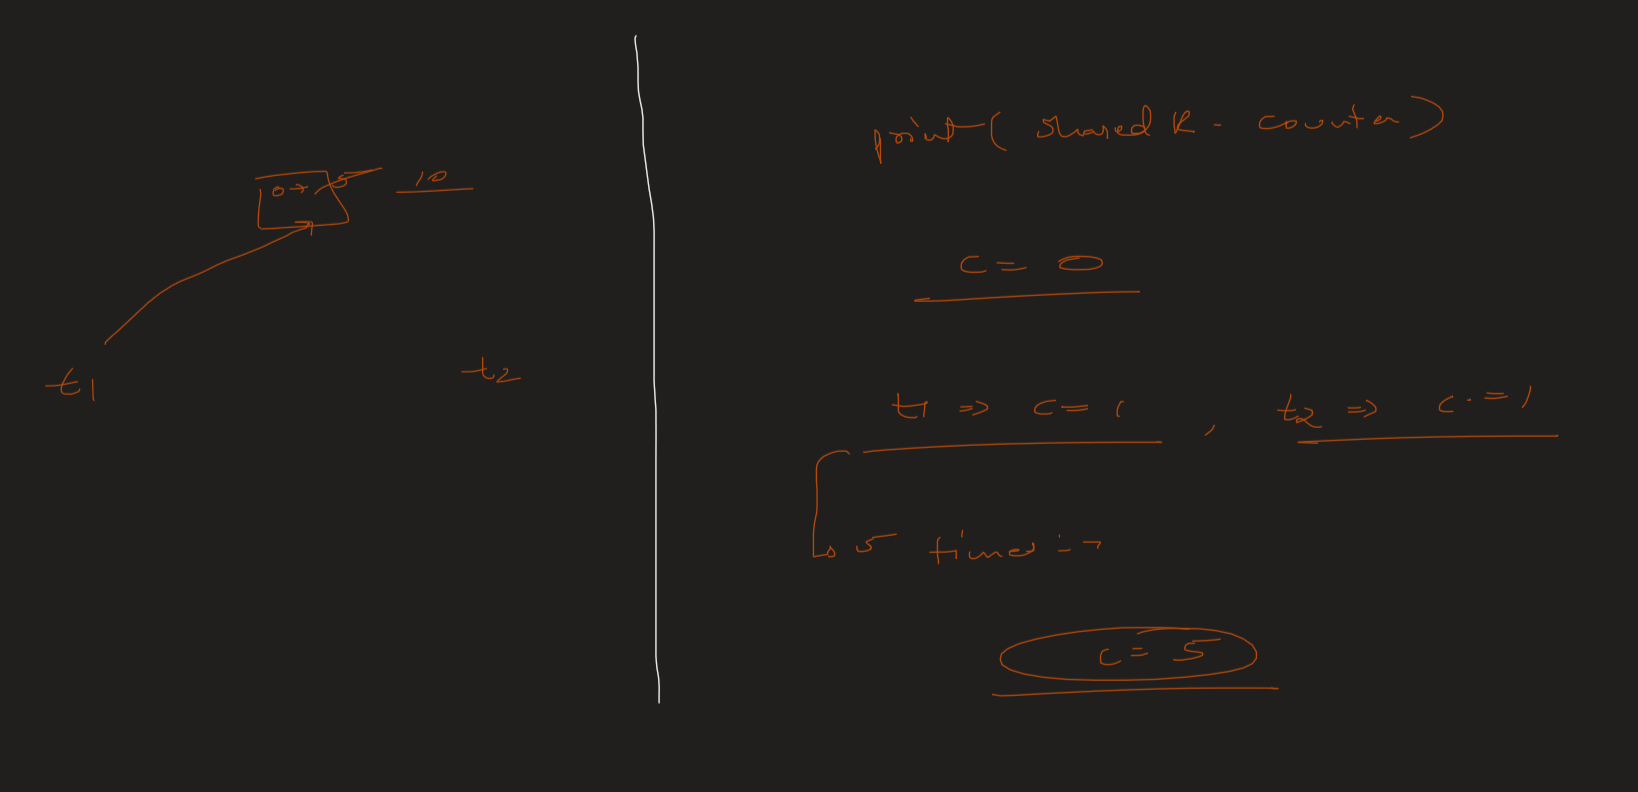 0 → 5 10
t1
t2
print( shared R - counter)
c = 0
t1 => c = 1 , t2 => c = 1
5 times :-
c = 5